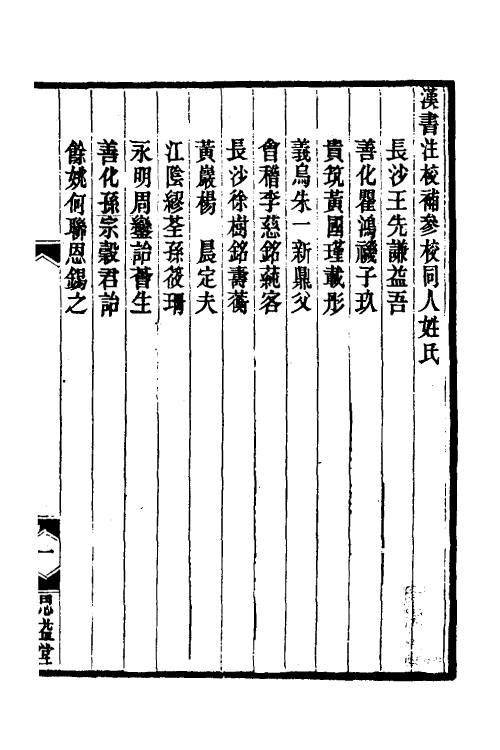 漢書注校補參校同人姓氏
長沙王先謙益吾
善化瞿鴻禨子玖
貴筑黃國瑾載彤
義烏朱一新鼎父
會稽李慈銘蒓客
長沙徐樹銘壽蘅
黃巖楊　晨定夫
江陰繆荃孫筱珊
永明周鑾詒薈生
善化孫宗穀君詒
餘姚何聯恩錫之
一
思益堂